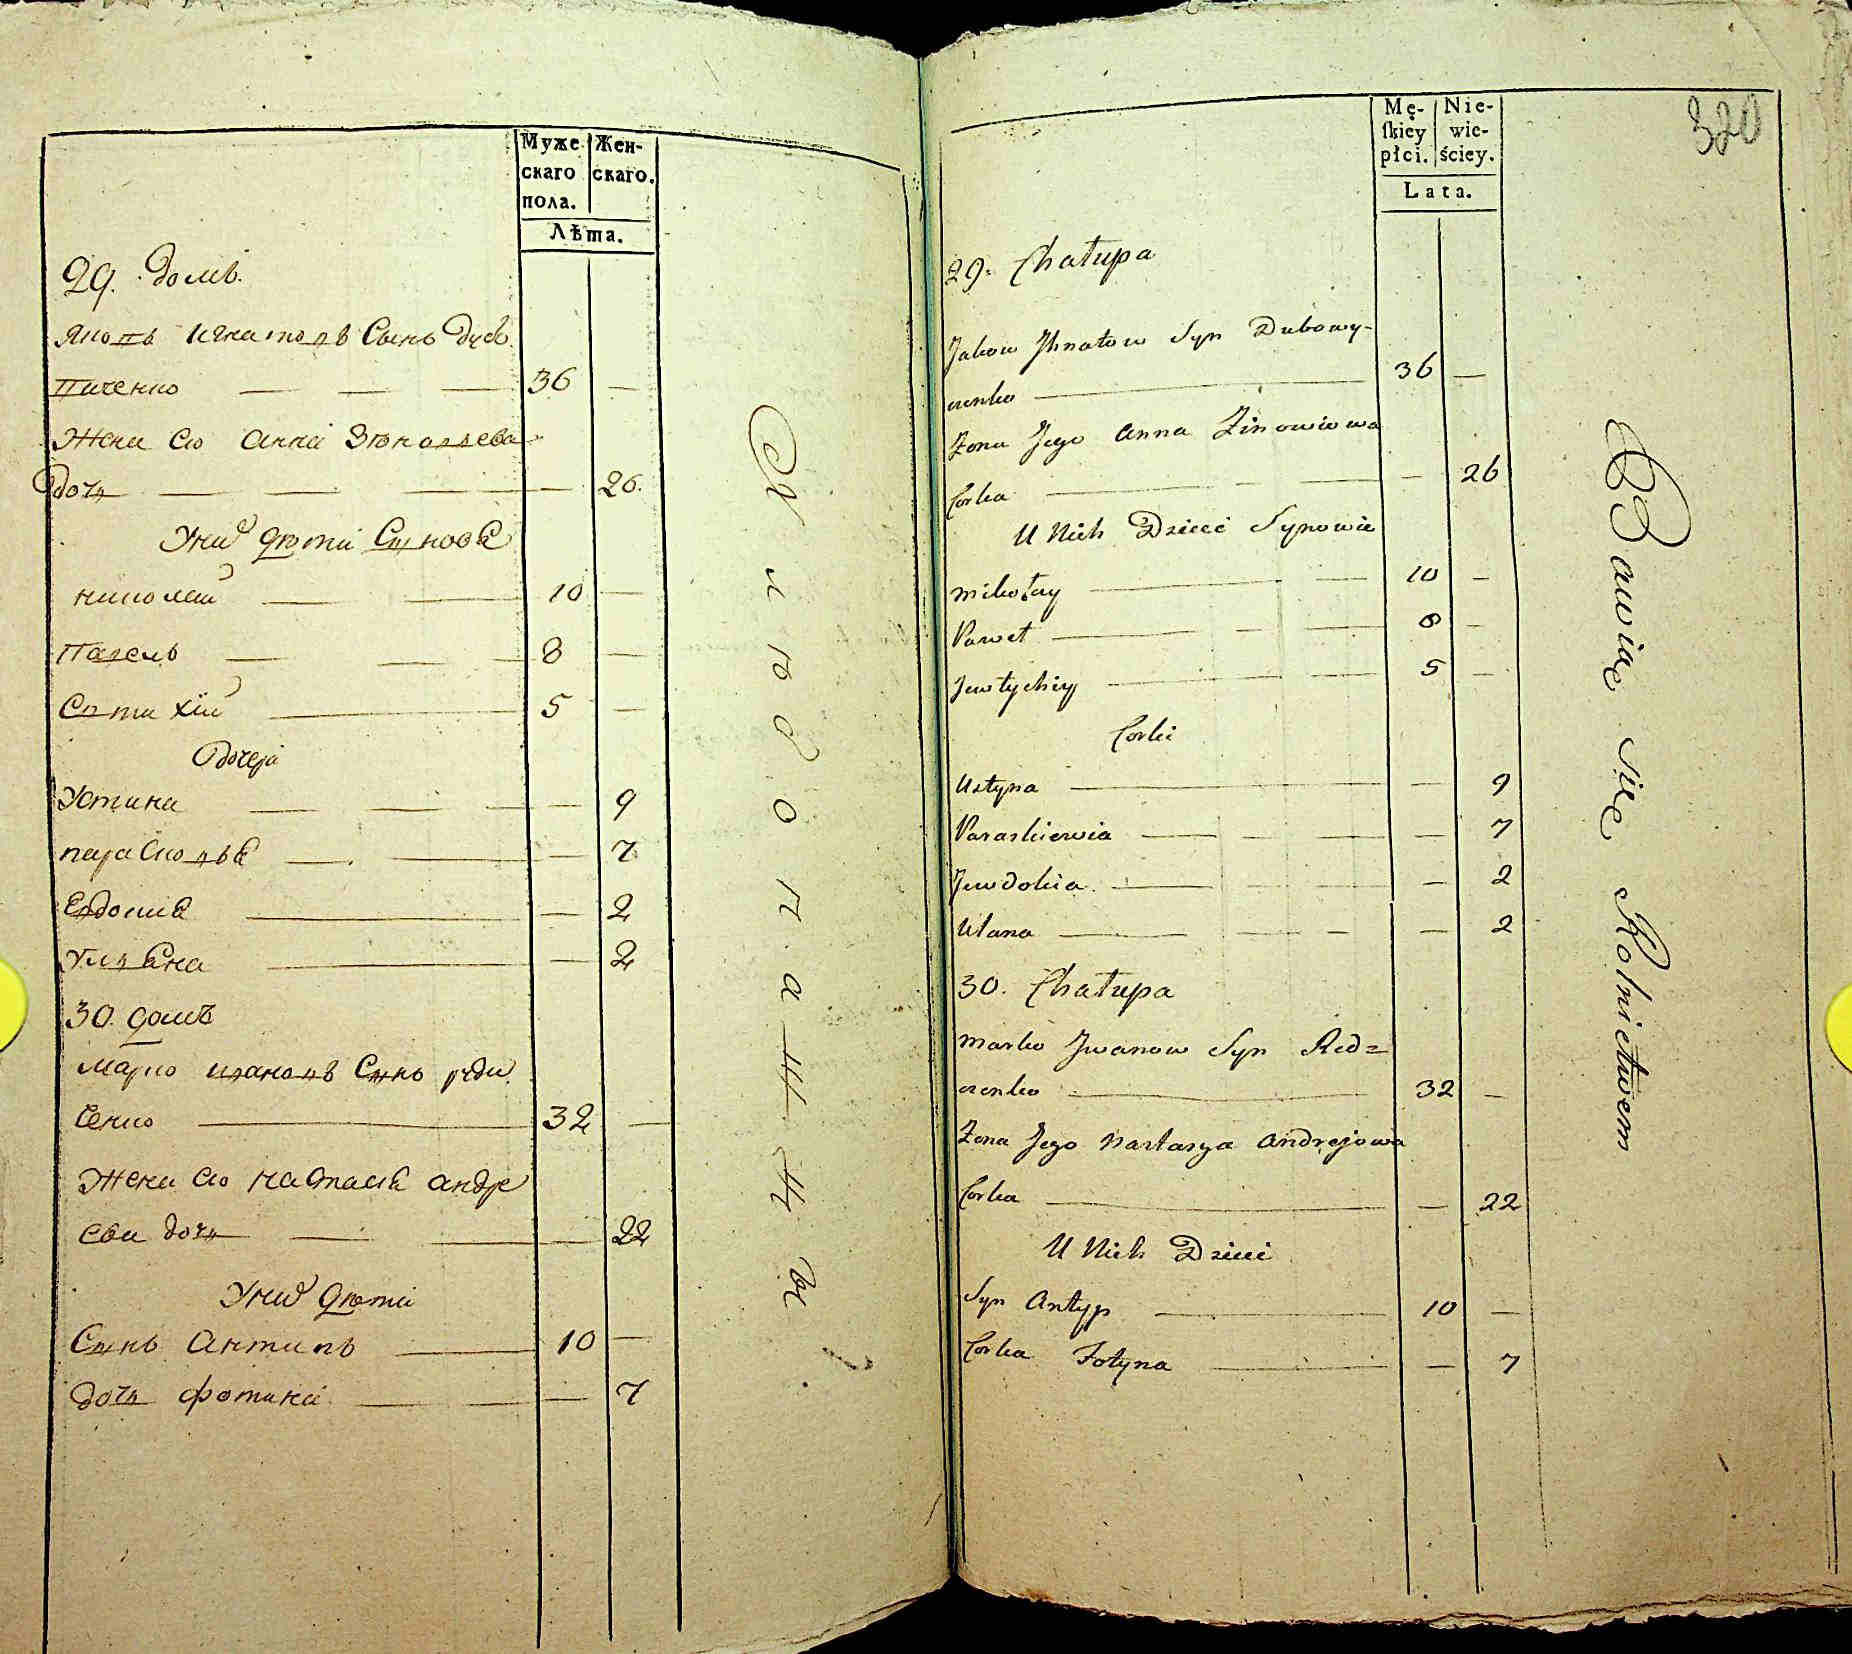 Муже
скаго
пола.
Жен-
скаго.
Лѣта.
29. домъ.
Яковъ Игнатовъ Сынъ Дубо
виченко — — — 36 —
Жена Его Анна Зѣновьева
дочь — — — — 26.
У них дѣти Сыновя
николай — — 10 —
Павель — — 8 —
Евтихїй — 5 —
Дочеря
Устина — — — — 9
параСковья — — — 7
Евдокия — — 2
Улияна — — 2
30. домъ
Марко ивановъ Сынъ реди
ченко — 32 —
Жена Его наСтасия андре
ева дочь — — — 22
У них дѣти
Сынъ Антипъ — 10 —
дочь фотина — — — 7
Хлѣбопашцы
320
Mę-
ſkiey
płci.
Nie-
wie-
ściey.
Lata.
29. Chałupa
Jakow Jhnatow Syn Dubowy-
czenko — 36 —
Żona Jego Anna Zinowiowa
Corka — — — — 26
U Nich Dzieci Synowie
Mikołay — — 10 —
Paweł — — — 8 —
Jewtychiy — — — 5 —
Corki
Ustyna — — 9
Paraskiewia — — — — 7
Jewdokia. — — — — 2
Ulana — — — — 2
30. Chałupa
Marko Jwanow Syn Red=
czenko — 32 —
Żona Jego Nastasya Andrejowa
Corka — — 22
U Nich Dzieci
Syn Antyp — 10 —
Corka Fotyna — — 7
Bawiąc się Rolnictwem